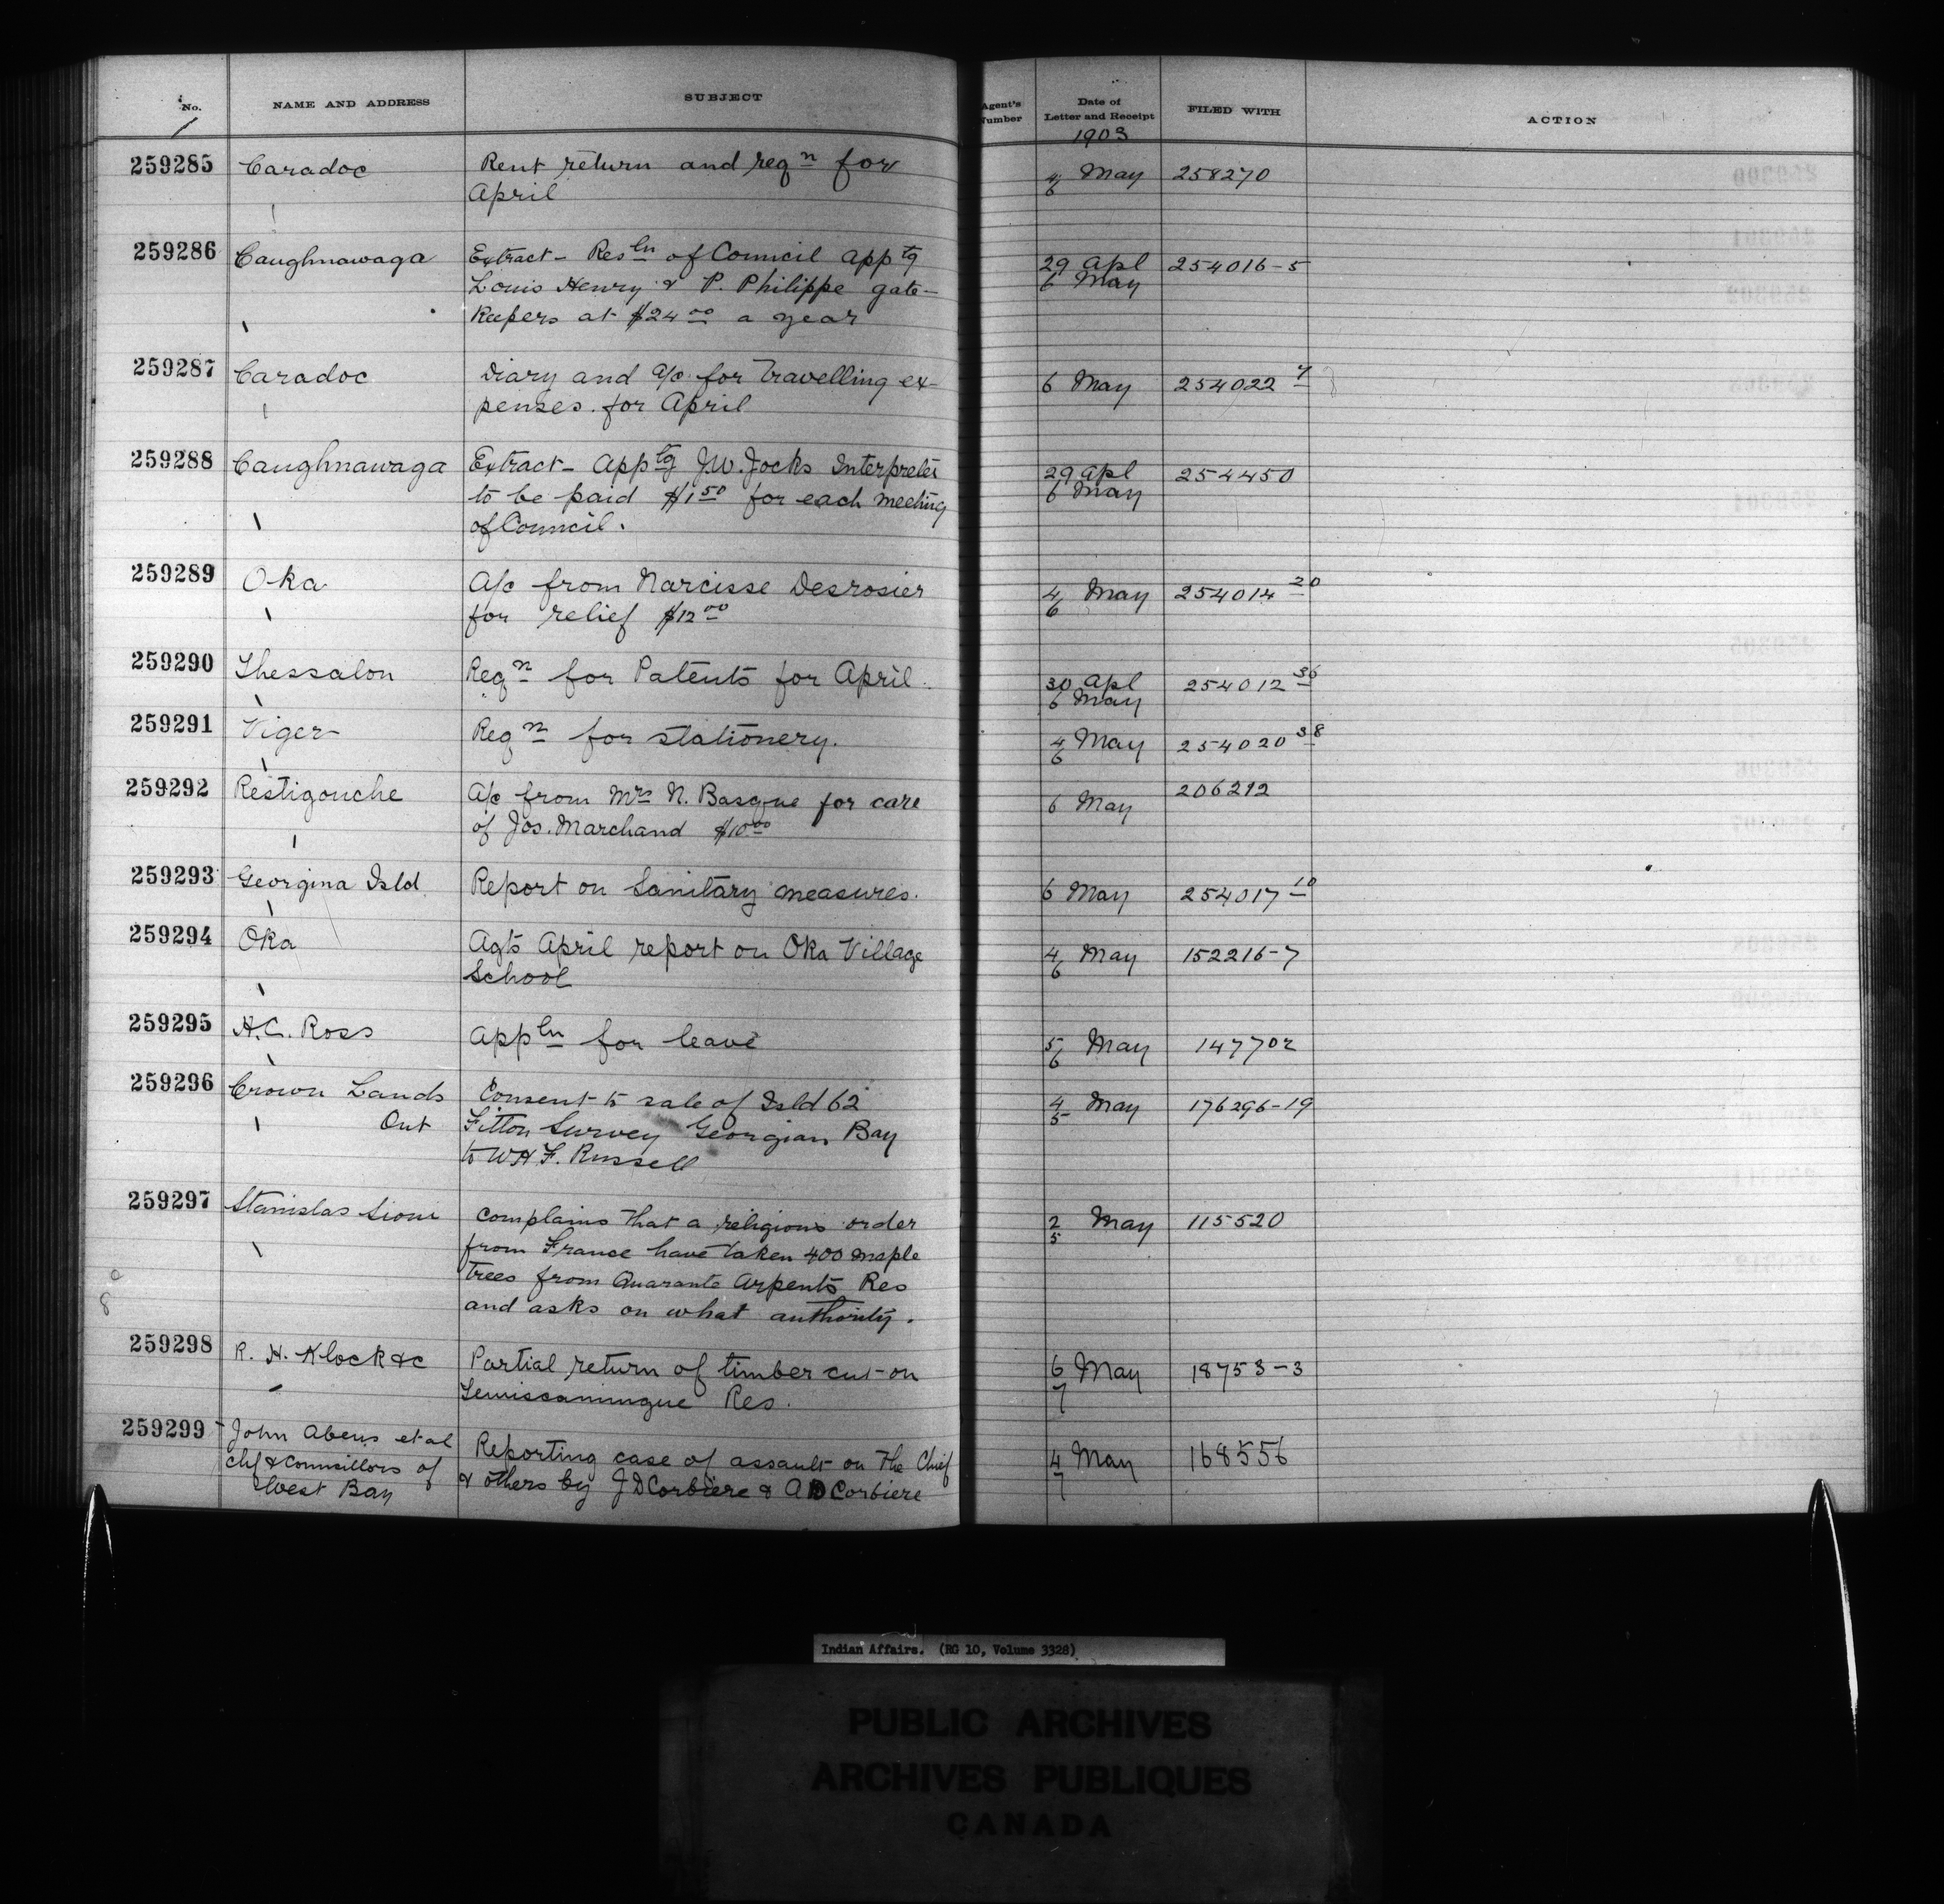 No. NAME AND ADDRESS SUBJECT Agent's Number Date of Letter and Receipt FILED WITH ACTION
1903
259285 Caradoc Rent return and reqn for 4/6 May 258270
April
259286 Caughnawaga Extract - Resln of Council apptg 29 Apl 254016-5
Louis Henry & P. Philippe gate- 6 May
keepers at $24 00 a year
259287 Caradoc Diary and a/c for travelling ex- 6 May 254022 7
penses for April
259288 Caughnawaga Extract - Apptg J.W. Jocks Interpreter 29 Apl 254450
to be paid $1 50 for each meeting 6 May
of Council.
259289 Oka A/c from Narcisse Desrosier 4/6 May 254014 20
for relief $12 00
259290 Thessalon Reqn for Patents for April. 30 Apl 254012 36
6 May
259291 Viger Reqn for stationery. 4/6 May 254020 38
259292 Restigouche A/c from Mrs N. Basque for care 6 May 206212
of Jos. Marchand $10 00
259293 Georgina Isld Report on Sanitary measures. 6 May 254017 10
259294 Oka Agts April report on Oka Village 4/6 May 152216-7
School
259295 H.C. Ross Appln for leave 5/6 May 147702
259296 Crown Lands Consent to sale of Isld 62 4/5 May 176296-19
Ont Fitton Survey Georgian Bay
to W H F. Russell
259297 Stanislas Sioui Complains that a religious order 2/5 May 115520
from France have taken 400 maple
trees from Quarante Arpents Res
and asks on what authority.
259298 R. H. Klock &c Partial return of timber cut on 6/7 May 18753-3
Temiscamingue Res.
259299 John Abens et al Reporting case of assault on the Chief 4/7 May 168556
chf & Councillors of & others by J D Corbiere & A D Corbiere
West Bay
Indian Affairs. (RG 10, Volume 3328)
PUBLIC ARCHIVES
ARCHIVES PUBLIQUES
CANADA